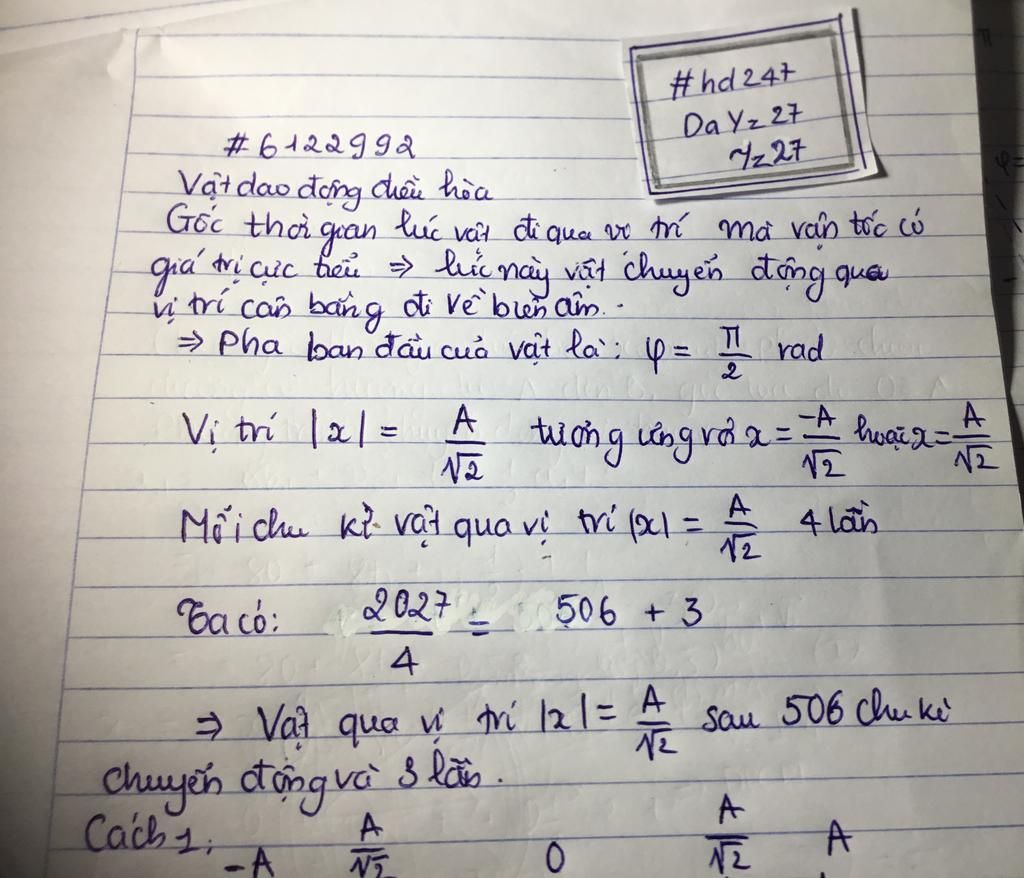 #hd247
DaYz27
Yz27
#6122992
Vật dao động điều hòa
Gốc thời gian lúc vật đi qua vị trí mà vận tốc có
giá trị cực tiểu ⇒ lúc này vật chuyển động qua
vị trí cân bằng đi về biên âm.
⇒ Pha ban đầu của vật là: φ = π/2 rad
Vị trí |x| = A/√2 tương ứng với x = -A/√2 hoặc x = A/√2
Mỗi chu kì vật qua vị trí |x| = A/√2 4 lần
Ta có: 2027/4 = 506 + 3
⇒ Vật qua vị trí |x| = A/√2 sau 506 chu kì
chuyển động và 3 lần.
Cách 1: -A A/√2 0 A/√2 A